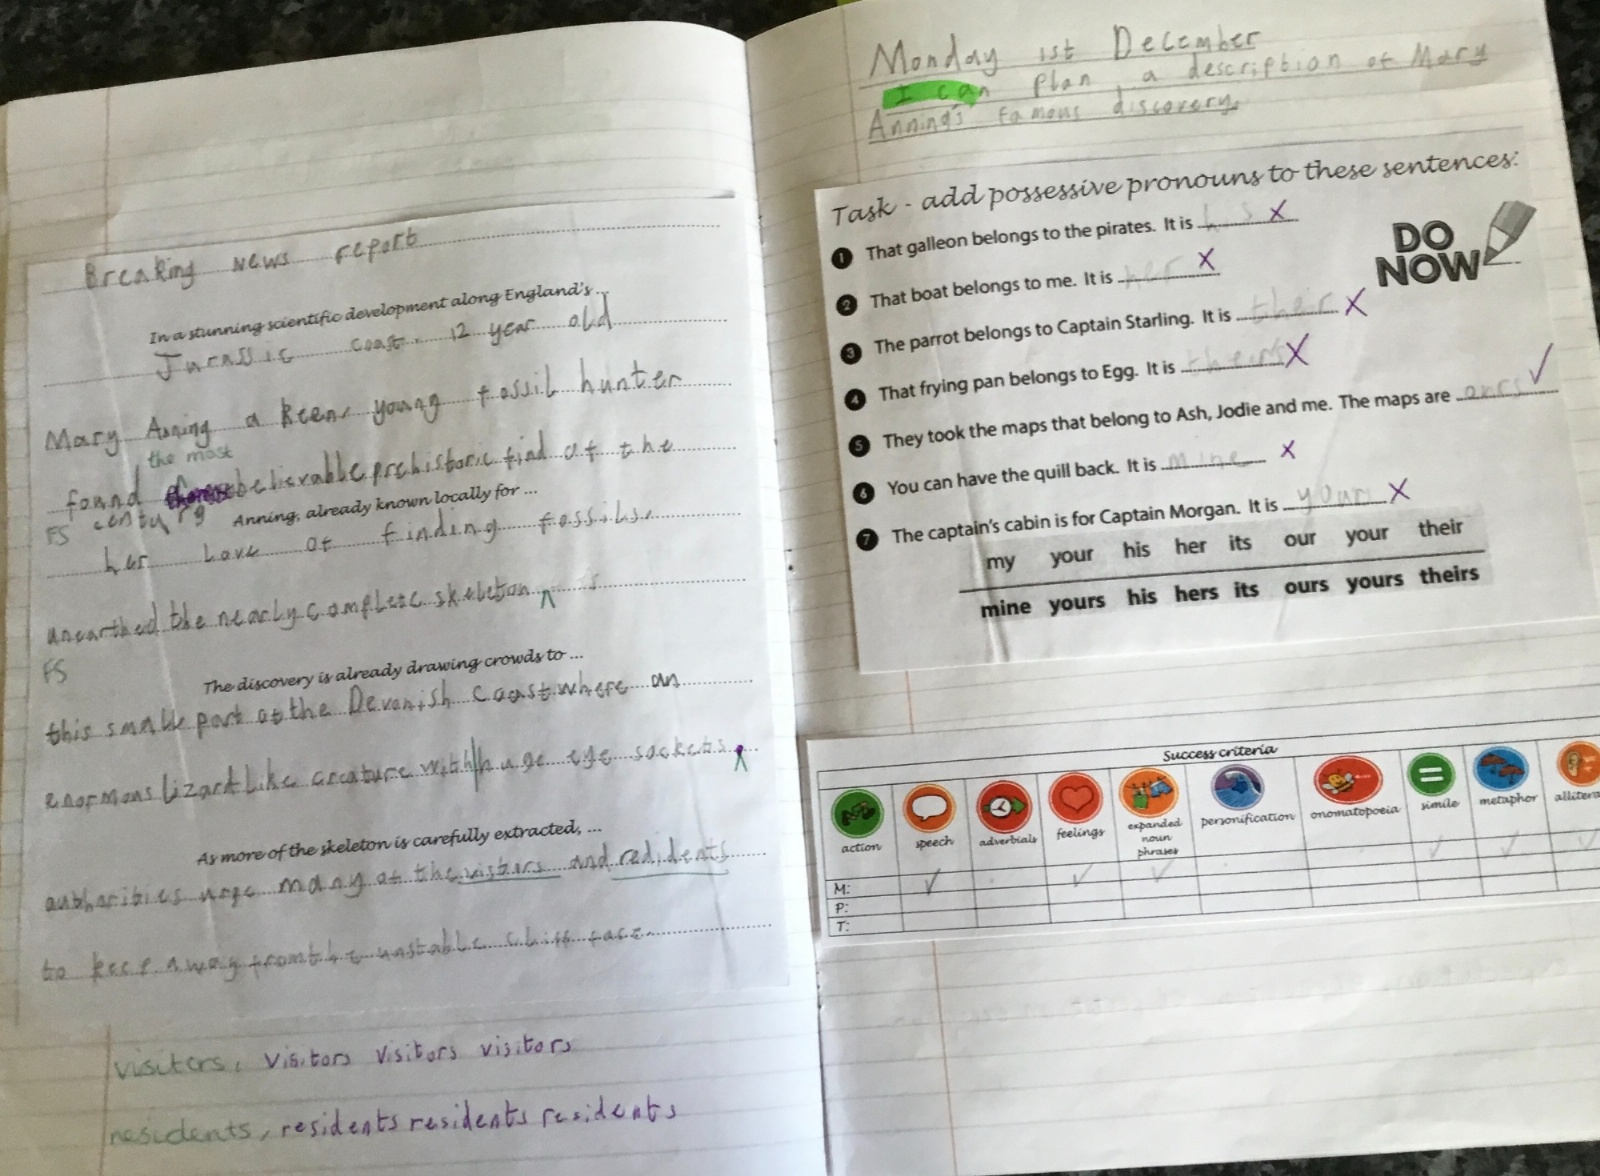 Breaking News report
In a stunning scientific development along England's ...
Jurassic coast, 12 year old
Mary Anning a keen, young fossil hunter
the most
found believable prehistoric find of the
FS century Anning, already known locally for ...
her love of finding fossils,
unearthed the nearly complete skeleton
FS
The discovery is already drawing crowds to ...
this small part of the Devonish Coast where an
enormous lizard like creature with huge eye sockets
As more of the skeleton is carefully extracted, ...
authorities urge many of the visters and redidents
to keep away from the unstable cliff face.
visitors, visitors visitors visitors
residents, residents residents residents
Monday 1st December
I can plan a description of Mary
Anning's famous discovery.
Task - add possessive pronouns to these sentences:
DO NOW
1 That galleon belongs to the pirates. It is X
2 That boat belongs to me. It is her X
3 The parrot belongs to Captain Starling. It is their X
4 That frying pan belongs to Egg. It is theirs X
5 They took the maps that belong to Ash, Jodie and me. The maps are ours ✓
6 You can have the quill back. It is mine X
7 The captain's cabin is for Captain Morgan. It is X
my your his her its our your their
mine yours his hers its ours yours theirs
Success criteria
action speech adverbials feelings expanded noun phrases personification onomatopoeia simile metaphor allitera
M: ✓ ✓ ✓ ✓ ✓ ✓
P:
T: